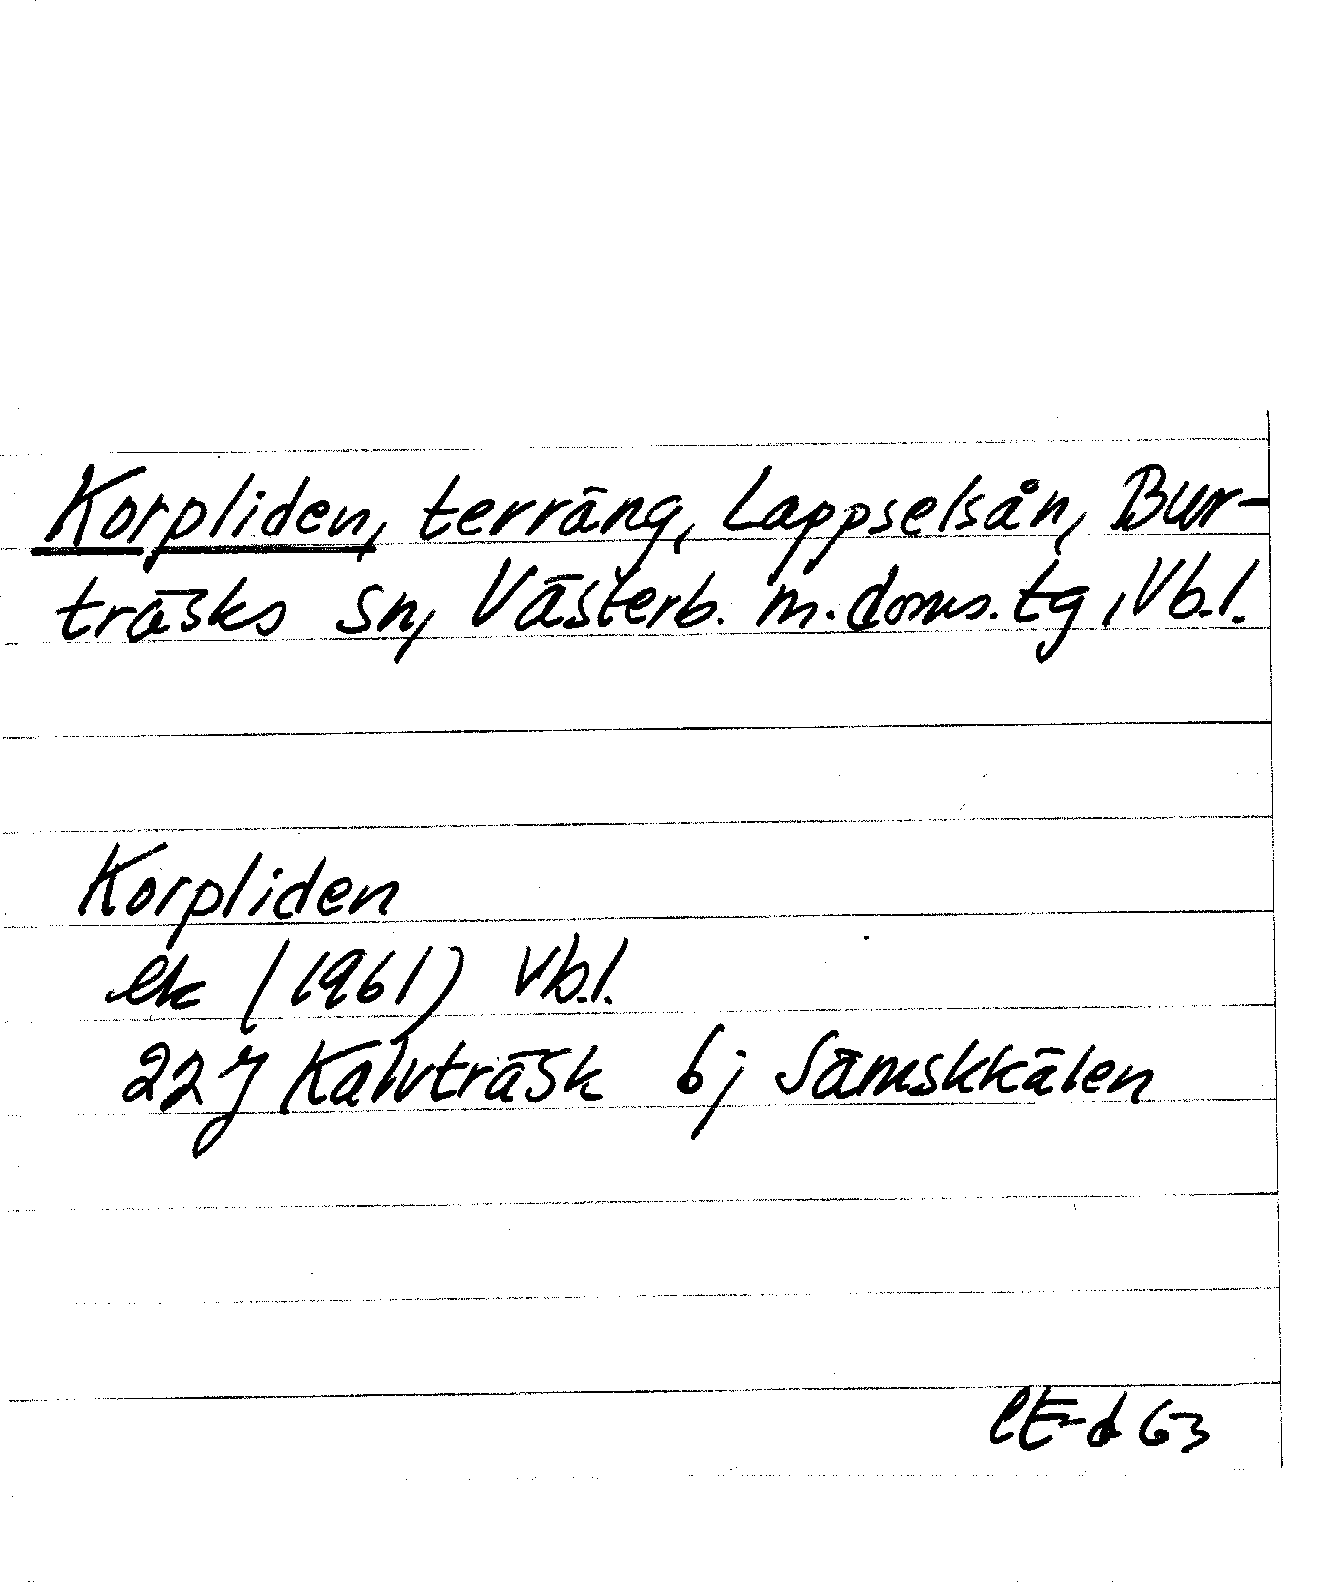 Korpliden, terräng, Lappselsån, Bur-
träsks sn, Västerb. m. doms. tg, Vb.l.
Korpliden
ek (1961) Vb.l.
22J Kalvträsk 6j Sämskkälen
63